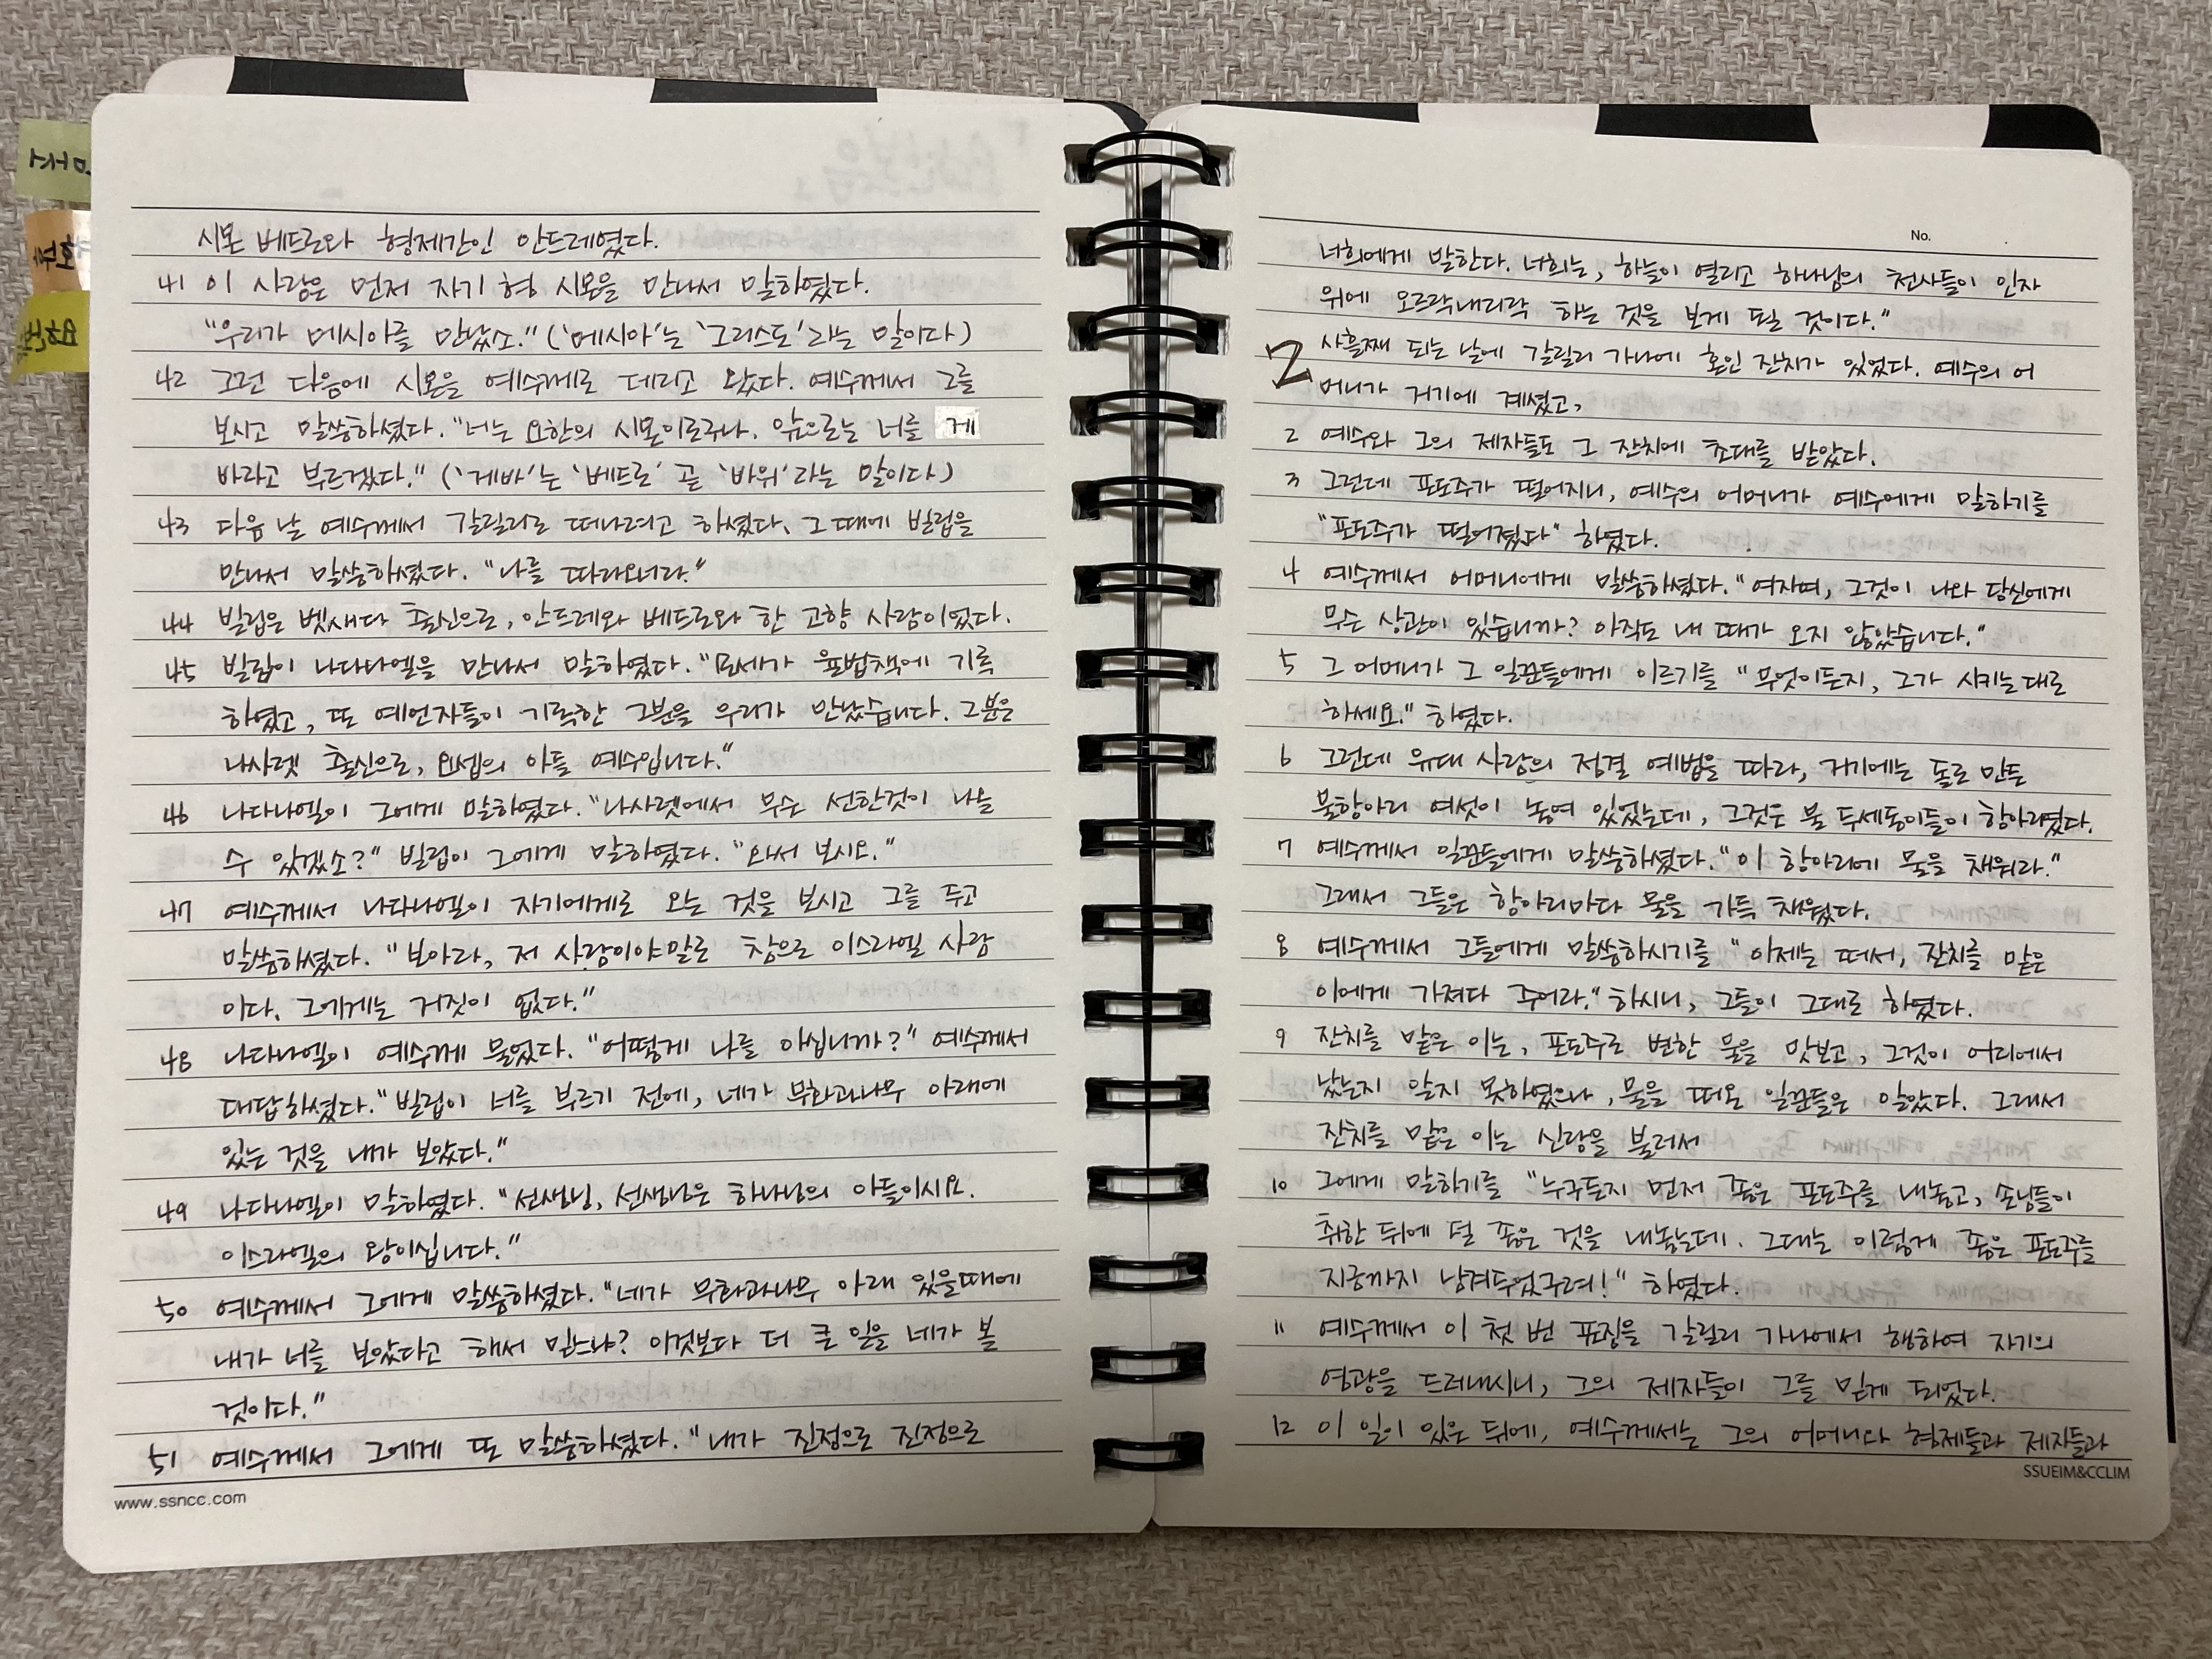 시몬 베드로와 형제간인 안드레였다.
41 이 사람은 먼저 자기 형 시몬을 만나서 말하였다.
"우리가 메시아를 만났소." ('메시아'는 '그리스도'라는 말이다)
42 그런 다음에 시몬을 예수께로 데리고 왔다. 예수께서 그를
보시고 말씀하셨다. "너는 요한의 시몬이로구나. 앞으로는 너를 게
바라고 부르겠다." ('게바'는 '베드로' 곧 '바위'라는 말이다)
43 다음 날 예수께서 갈릴리로 떠나려고 하셨다. 그 때에 빌립을
만나서 말씀하셨다. "나를 따라오너라."
44 빌립은 벳새다 출신으로, 안드레와 베드로와 한 고향 사람이었다.
45 빌립이 나다나엘을 만나서 말하였다. "모세가 율법책에 기록
하였고, 또 예언자들이 기록한 그분을 우리가 만났습니다. 그분은
나사렛 출신으로, 요셉의 아들 예수입니다."
46 나다나엘이 그에게 말하였다. "나사렛에서 무슨 선한것이 나올
수 있겠소?" 빌립이 그에게 말하였다. "와서 보시오."
47 예수께서 나다나엘이 자기에게로 오는 것을 보시고 그를 두고
말씀하셨다. "보아라, 저 사람이야말로 참으로 이스라엘 사람
이다. 그에게는 거짓이 없다."
48 나다나엘이 예수께 물었다. "어떻게 나를 아십니까?" 예수께서
대답하셨다. "빌립이 너를 부르기 전에, 네가 무화과나무 아래에
있는 것을 내가 보았다."
49 나다나엘이 말하였다. "선생님, 선생님은 하나님의 아들이시요.
이스라엘의 왕이십니다."
50 예수께서 그에게 말씀하셨다. "네가 무화과나무 아래 있을때에
내가 너를 보았다고 해서 믿느냐? 이것보다 더 큰 일을 네가 볼
것이다."
51 예수께서 그에게 또 말씀하셨다. "내가 진정으로 진정으로
www.ssncc.com
No.
너희에게 말한다. 너희는, 하늘이 열리고 하나님의 천사들이 인자
위에 오르락내리락 하는 것을 보게 될 것이다."
2 사흘째 되는 날에 갈릴리 가나에 혼인 잔치가 있었다. 예수의 어
머니가 거기에 계셨고,
2 예수와 그의 제자들도 그 잔치에 초대를 받았다.
3 그런데 포도주가 떨어지니, 예수의 어머니가 예수에게 말하기를
"포도주가 떨어졌다" 하였다.
4 예수께서 어머니에게 말씀하셨다. "여자여, 그것이 나와 당신에게
무슨 상관이 있습니까? 아직도 내 때가 오지 않았습니다."
5 그 어머니가 그 일꾼들에게 이르기를 "무엇이든지, 그가 시키는대로
하세요." 하였다.
6 그런데 유대 사람의 정결 예법을 따라, 거기에는 돌로 만든
물항아리 여섯이 놓여 있었는데, 그것은 물 두세동이들이 항아리였다.
7 예수께서 일꾼들에게 말씀하셨다. "이 항아리에 물을 채워라."
그래서 그들은 항아리마다 물을 가득 채웠다.
8 예수께서 그들에게 말씀하시기를 "이제는 떠서, 잔치를 맡은
이에게 가져다 주어라." 하시니, 그들이 그대로 하였다.
9 잔치를 맡은 이는, 포도주로 변한 물을 맛보고, 그것이 어디에서
났는지 알지 못하였으나, 물을 떠온 일꾼들은 알았다. 그래서
잔치를 맡은 이는 신랑을 불러서
10 그에게 말하기를 "누구든지 먼저 좋은 포도주를 내놓고, 손님들이
취한 뒤에 덜 좋은 것을 내놓는데. 그대는 이렇게 좋은 포도주를
지금까지 남겨두었구려!" 하였다.
11 예수께서 이 첫 번 표징을 갈릴리 가나에서 행하여 자기의
영광을 드러내시니, 그의 제자들이 그를 믿게 되었다.
12 이 일이 있은 뒤에, 예수께서는 그의 어머니와 형제들과 제자들과
SSUEIM&CCLIM